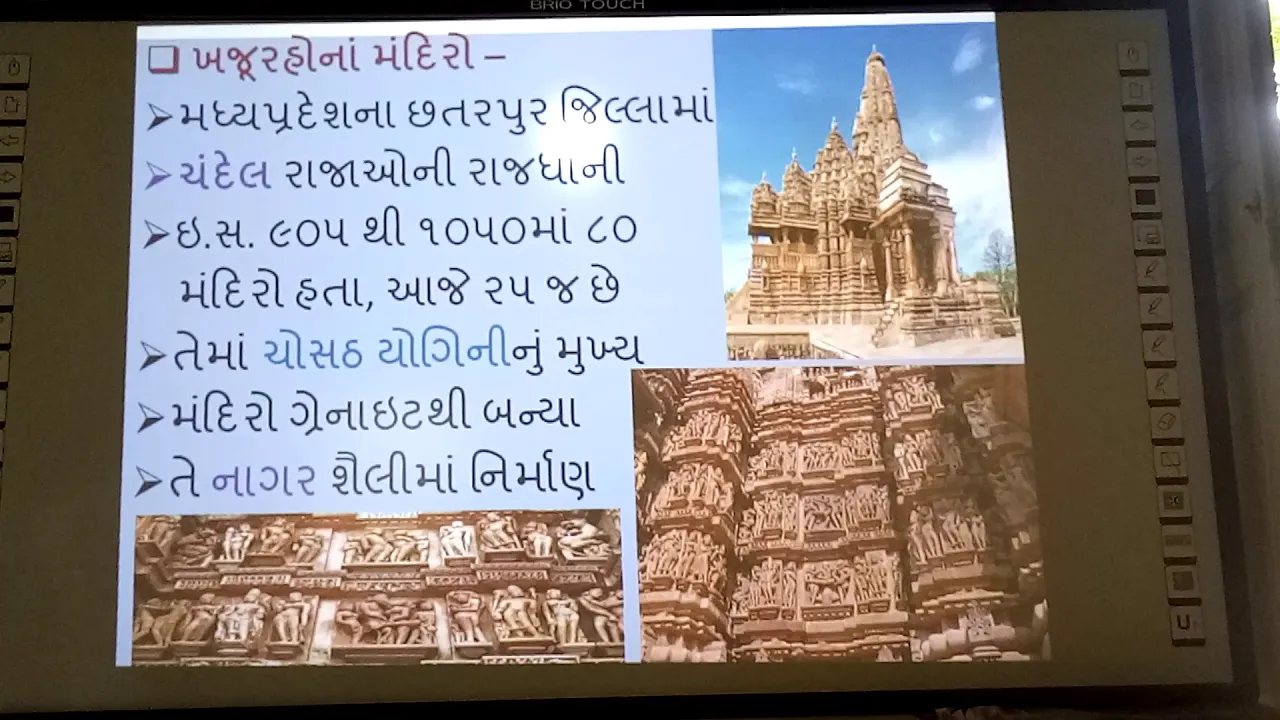 BRIO TOUCH
❑ ખજૂરહોનાં મંદિરો –
➢મધ્યપ્રદેશના છતરપુર જિલ્લામાં
➢ચંદેલ રાજાઓની રાજધાની
➢ઇ.સ. ૯૦૫ થી ૧૦૫૦માં ૮૦
મંદિરો હતા, આજે ૨૫ જ છે
➢તેમાં ચોસઠ યોગિનીનું મુખ્ય
➢મંદિરો ગ્રેનાઇટથી બન્યા
➢તે નાગર શૈલીમાં નિર્માણ